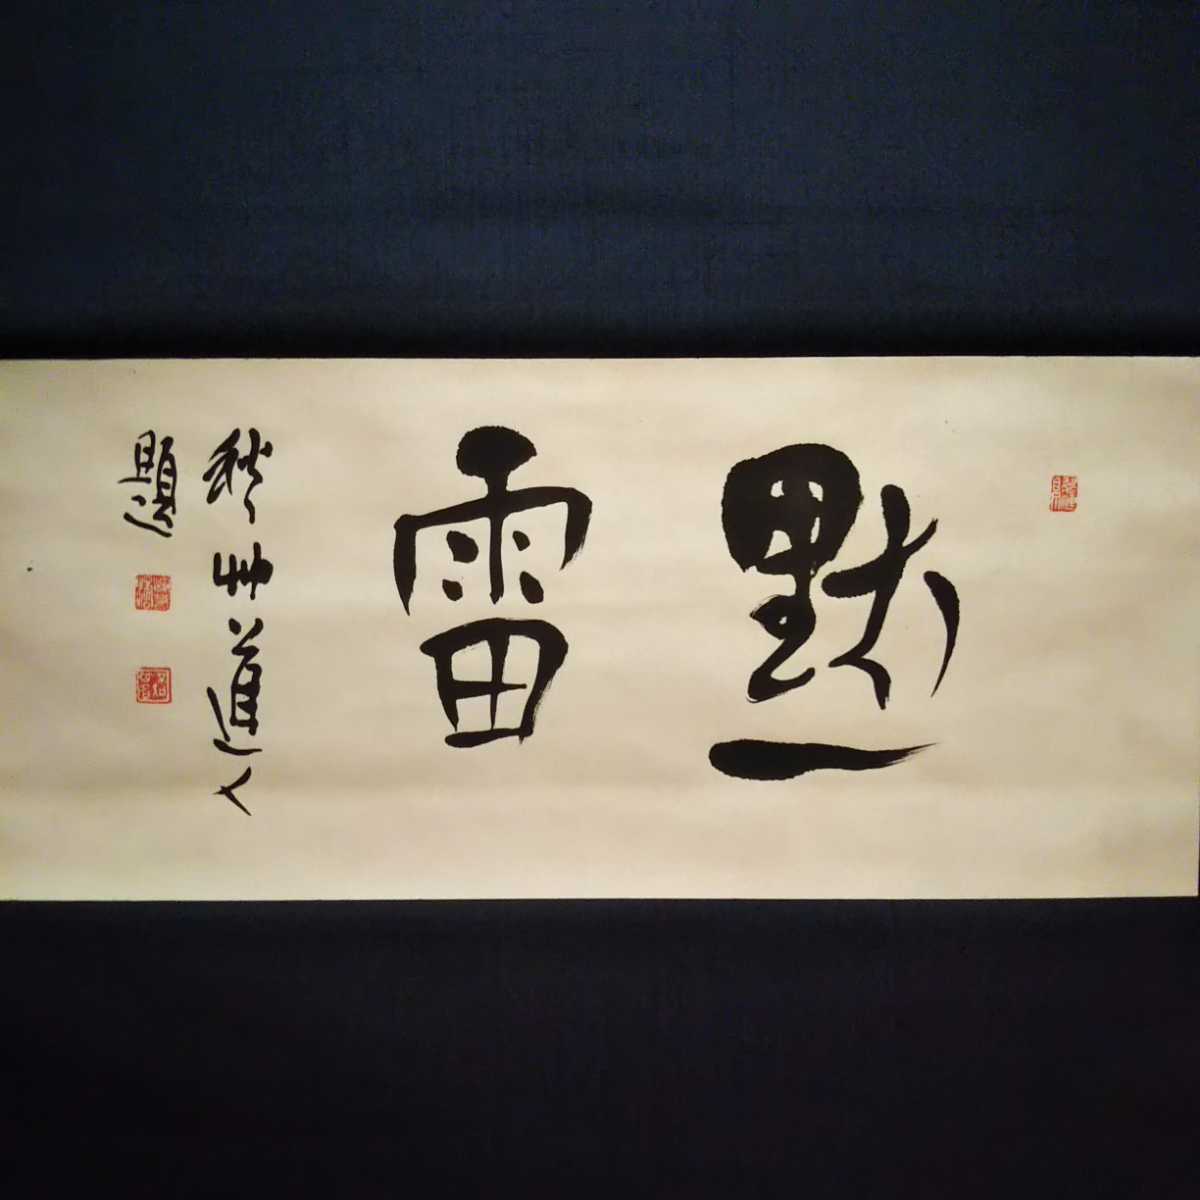 默雷
秋艸道人
題